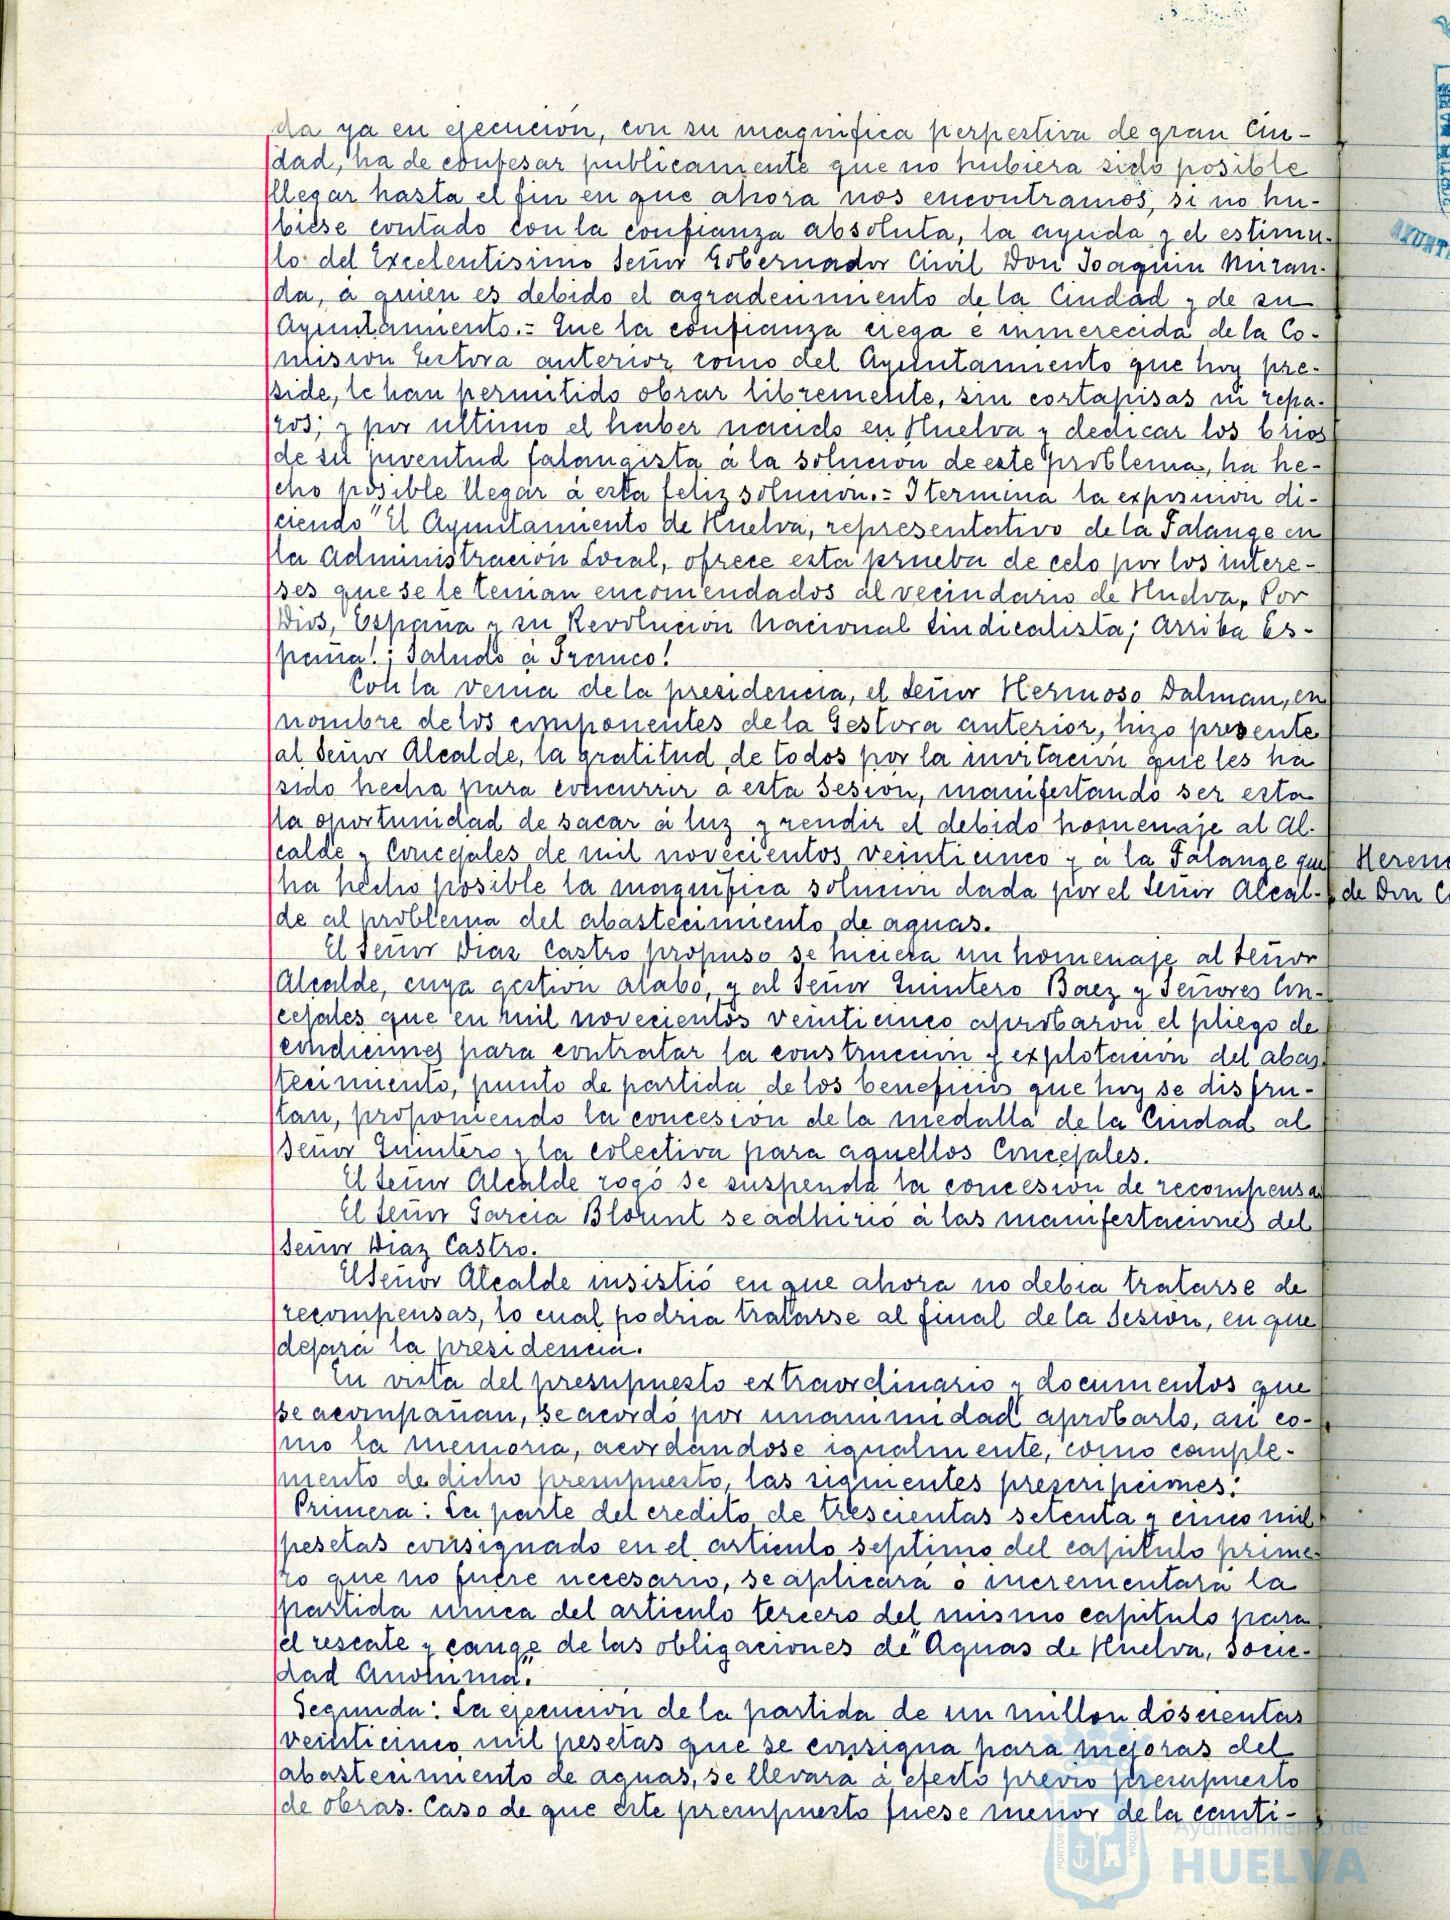 da ya en ejecución, con su magnifica perpestiva de gran Ciu-
dad, ha de confesar publicamente que no hubiera sido posible
llegar hasta el fin en que ahora nos encontramos, si no hu-
biese contado con la confianza absoluta, la ayuda y el estimu-
lo del Excelentisimo Señor Gobernador Civil Don Joaquin Miran-
da, a quien es debido el agradecimiento de la Ciudad y de su
Ayuntamiento.= Que la confianza ciega é inmerecida de la Co-
mision Gestora anterior como del Ayuntamiento que hoy pre-
side, le han permitido obrar libremente, sin cortapisas ni repa-
ros; y por ultimo el haber nacido en Huelva y dedicar los brios
de su juventud falangista á la solución de este problema, ha he-
cho posible llegar á esta feliz solución.= I termina la exposición di-
ciendo "El Ayuntamiento de Huelva, representativo de la Falange en
la Administración Local, ofrece esta prueba de celo por los intere-
ses que se le tenian encomendados al vecindario de Huelva. Por
Dios, España y su Revolución Nacional Sindicalista; Arriba Es-
paña! ¡Saludo á Franco!
Con la venia de la presidencia, el Señor Hermoso Dalman, en
nombre de los componentes de la Gestora anterior, hizo presente
al Señor Alcalde, la gratitud de todos por la invitación que les ha
sido hecha para concurrir a esta Sesión, manifestando ser esta
la oportunidad de sacar á luz y rendir el debido homenaje al Al-
calde y Concejales de mil novecientos veinticinco y a la Falange que
ha hecho posible la magnifica solución dada por el Señor Alcal-
de al problema del abastecimiento de aguas.
El Señor Diaz Castro propuso se hiciera un homenaje al Señor
Alcalde, cuya gestión alabó, y al Señor Quintero Baez y Señores Con-
cejales que en mil novecientos veinticinco aprobaron el pliego de
condiciones para contratar la construcción y explotación del abas-
tecimiento, punto de partida de los beneficios que hoy se disfru-
tan, proponiendo la concesión de la medalla de la Ciudad al
Señor Quintero y la colectiva para aquellos Concejales.
El Señor Alcalde rogó se suspenda la concesión de recompensa
El Señor Garcia Blount se adhirió á las manifestaciones del
Señor Diaz Castro.
El Señor Alcalde insistió en que ahora no debia tratarse de
recompensas, lo cual podria tratarse al final de la Sesión, en que
dejará la presidencia.
En vista del presupuesto extraordinario y documentos que
se acompañan, se acordó por unanimidad aprobarlo, asi co-
mo la memoria, acordándose igualmente, como comple-
mento de dicho presupuesto, las siguientes prescripciones:
Primera: La parte del credito de trescientas setenta y cinco mil
pesetas consignado en el articulo septimo del capitulo prime-
ro que no fuere necesario, se aplicará o incrementara la
partida unica del articulo tercero del mismo capitulo para
el rescate y cange de las obligaciones de "Aguas de Huelva, Socie-
dad Anonima".
Segunda: La ejecución de la partida de un millon doscientas
veinticinco mil pesetas que se consigna para mejoras del
abastecimiento de aguas, se llevará á efecto previo presupuesto
de obras. Caso de que este presupuesto fuese menor de la canti-
Heren
de Don C
AYUNT
Ayuntamiento de
HUELVA